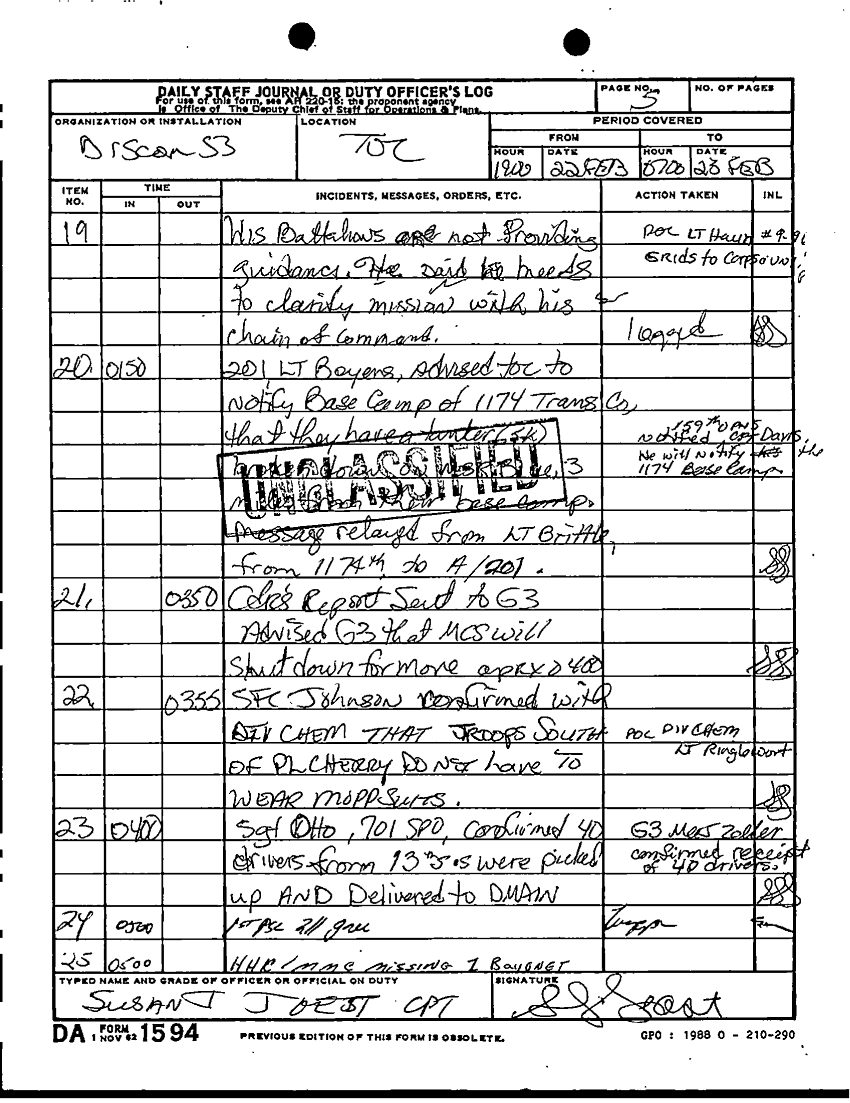 DAILY STAFF JOURNAL OR DUTY OFFICER'S LOG
For use of this form, see AR 220-15; the proponent agency
is Office of The Deputy Chief of Staff for Operations & Plans.
PAGE NO.
5
NO. OF PAGES
ORGANIZATION OR INSTALLATION
DISCOM S3
LOCATION
TOC
PERIOD COVERED
FROM
TO
HOUR
DATE
HOUR
DATE
1900
22 FEB
0700
23 FEB
ITEM NO.
TIME
IN
OUT
INCIDENTS, MESSAGES, ORDERS, ETC.
ACTION TAKEN
INL
19
His Battalions are not Providing
guidance. He said he needs
to clarify mission with his
chain of Command.
POC LT Haun
GRIDS to
logged
20. 0150
201, LT Boyens, advised toc to
Notify Base Camp of 1174 Trans Co,
that they have a tanker (5k)
broken down on MSR Blue, 3
miles from their base camp.
Message relayed from LT Brittle,
from 1174th to A/201.
notified, Davis,
He will notify the
1174 Base Camp
UNCLASSIFIED
21. 0350
Cdr's Report Sent to G3
Advised G3 that MCS will
Shut down for move aprx 0400
22 0355
SFC Johnson confirmed with
DIV CHEM THAT TROOPS SOUTH
OF PL CHERRY DO NOT have TO
WEAR MOPP SUITS.
POC DIV CHEM
LT
23 0400
Sgt Otto, 701 SPO, Confirmed 40
drivers from were picked
up AND Delivered to DMAIN
G3
confirmed receipt
of 40 drivers.
24 0500
25 0500
missing 1 BAYONET
TYPED NAME AND GRADE OF OFFICER OR OFFICIAL ON DUTY
SUSAN J JOEST CPT
SIGNATURE
DA FORM 1594
1 NOV 62
PREVIOUS EDITION OF THIS FORM IS OBSOLETE.
GPO : 1988 O - 210-290